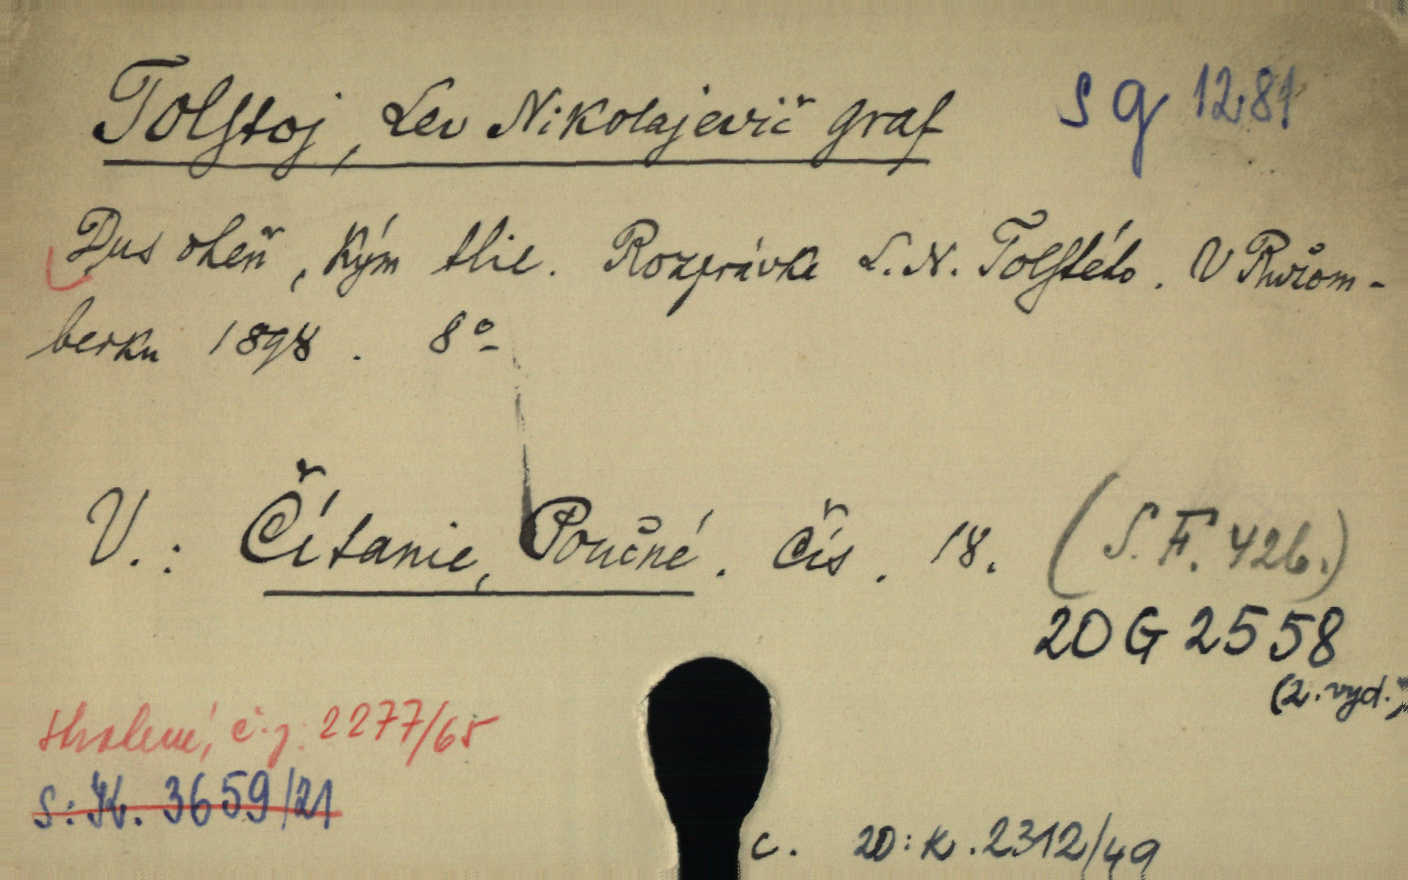 Tolstoj, Lev Nikolajevič graf
S g 1281
Dus oheň, kým tlie. Rozprávka L. N. Tolstého. V Ružom-
berku 1898. 8°
V.: Čítanie, Poučné. Čís. 18.
(S. F. 426.)
20 G 2558
(2. vyd.)
skolené, č. j. 2277/65
S: K. 3659/21
c. 20: K. 2312/49